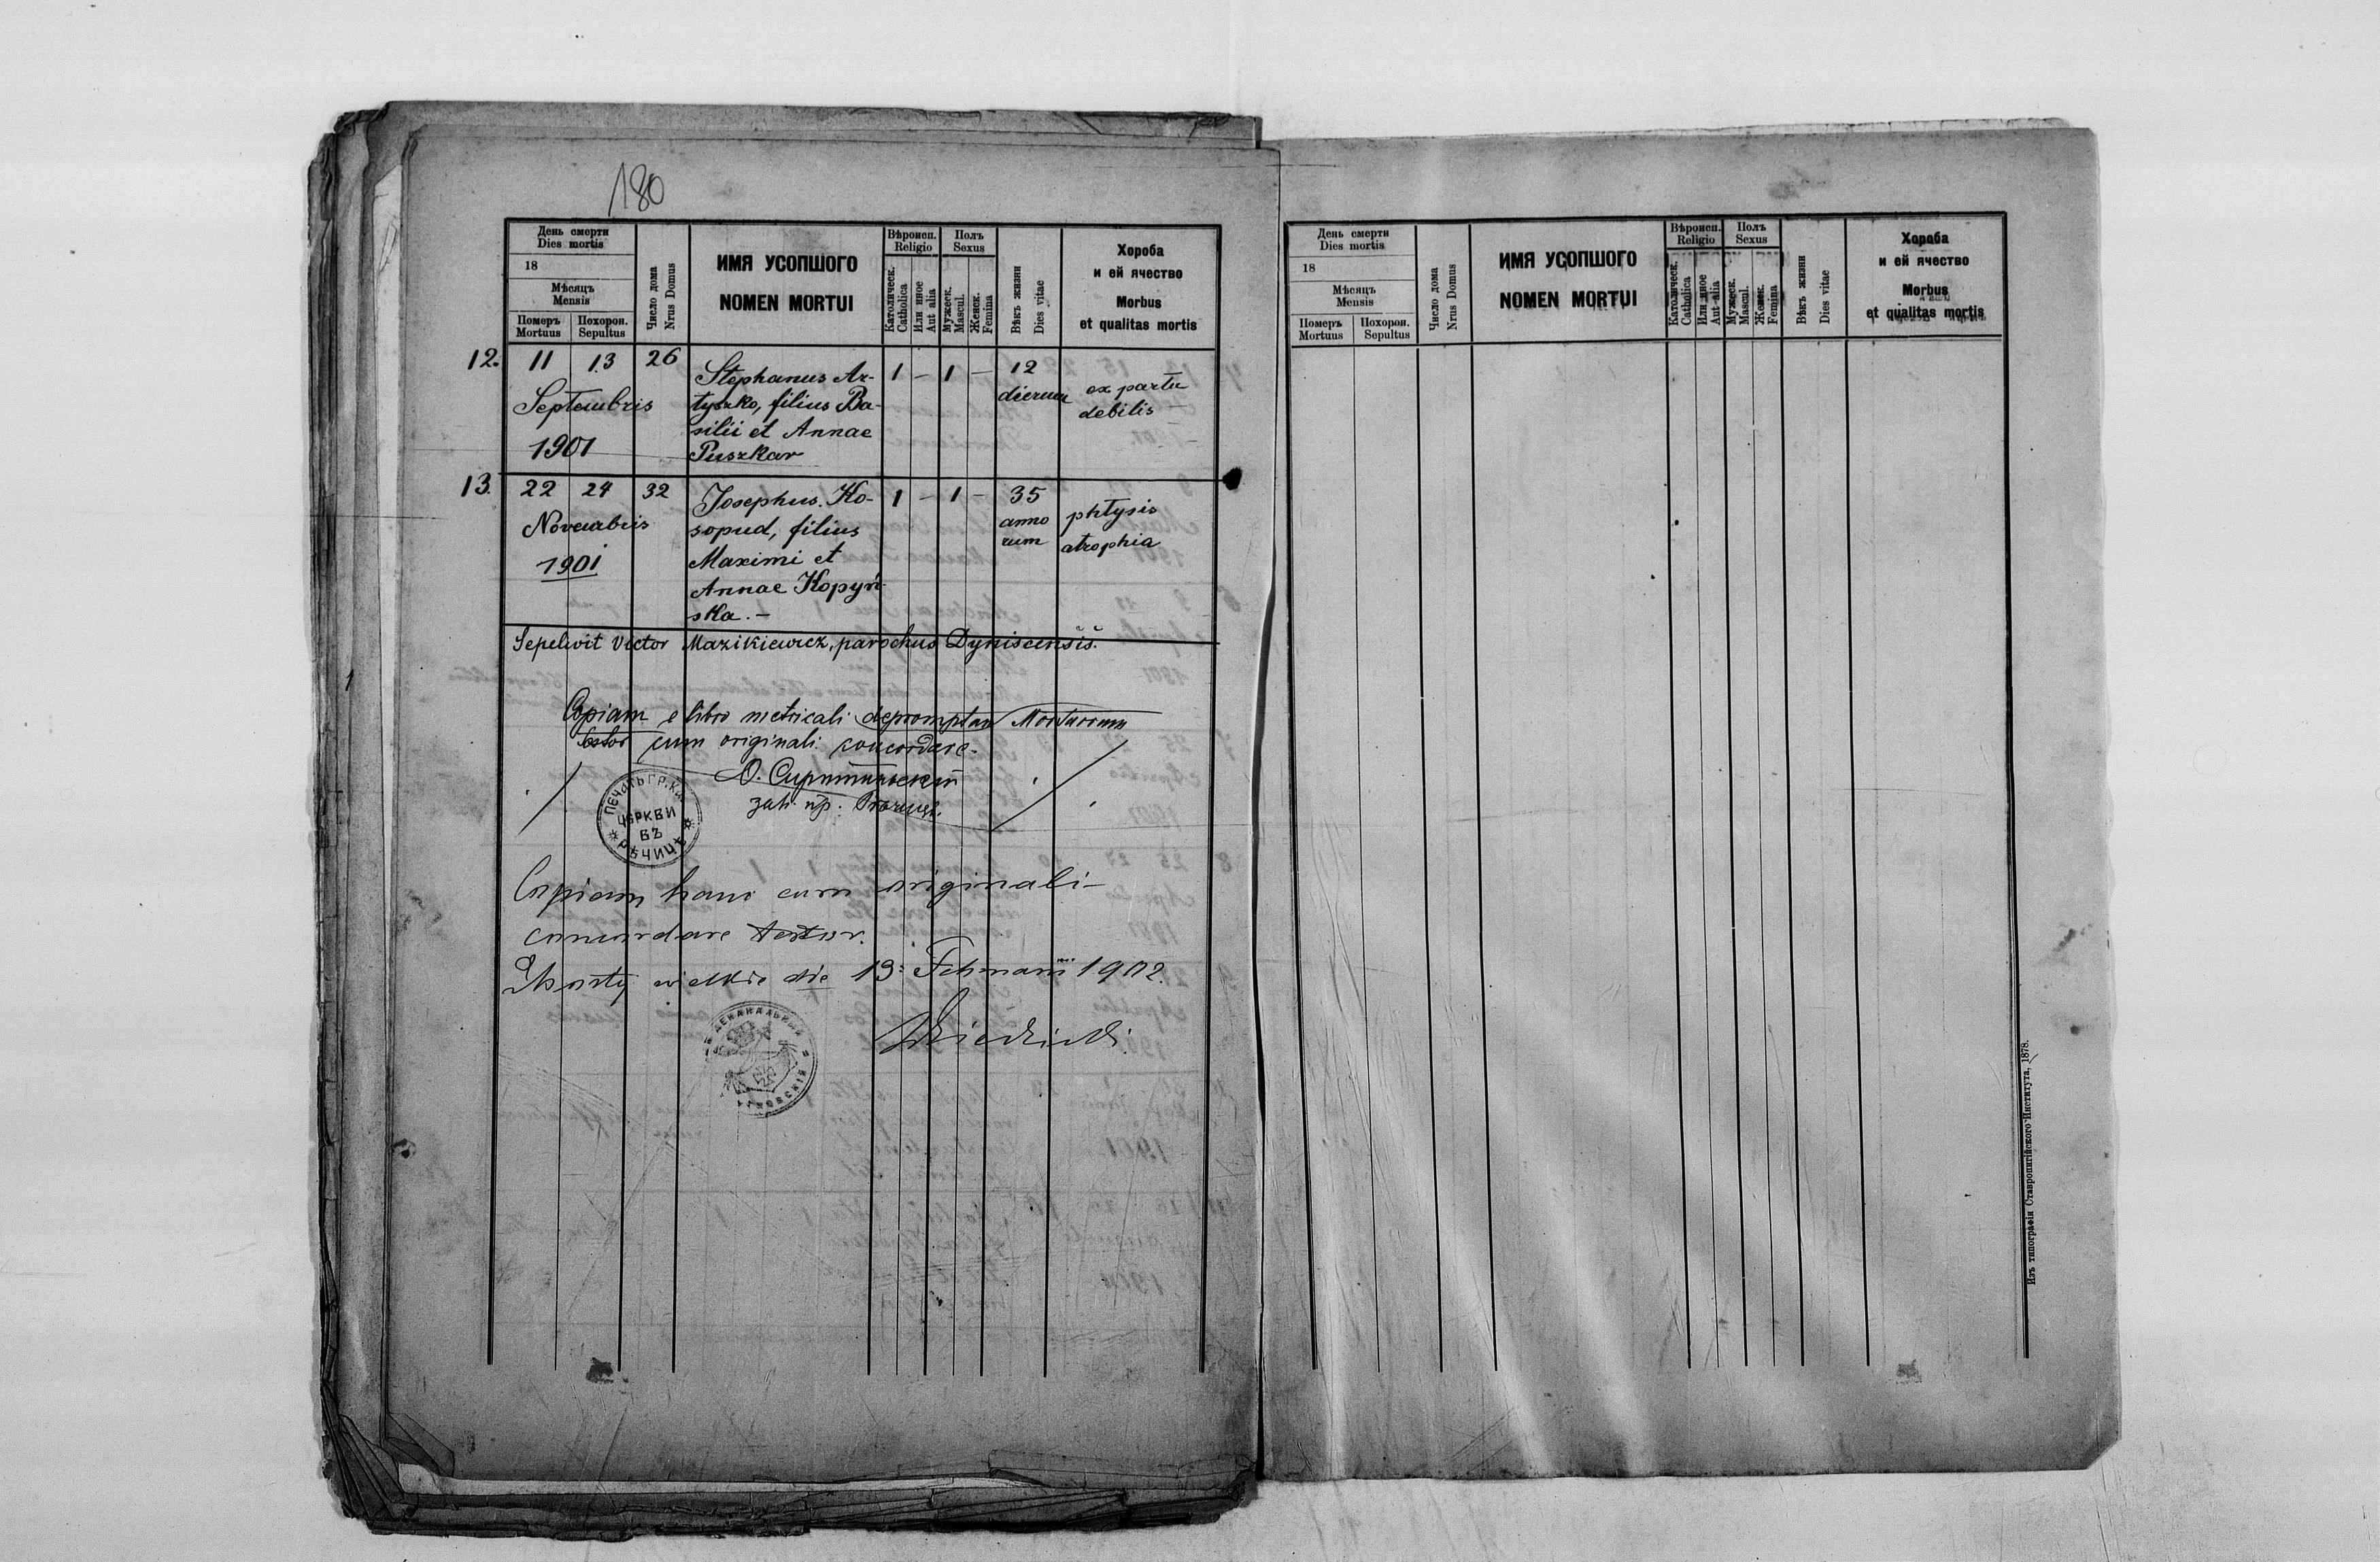 180
День смерти
Dies mortis
18
Мѣсяцъ
Mensis
Померъ
Mortuus
Похорон.
Sepultus
Число дома
Nrus Domus
ИМЯ УСОПШОГО
NOMEN MORTUI
Вѣроисп.
Religio
Католическ.
Catholica
Или иное
Aut alia
Полъ
Sexus
Мужеск.
Mascul.
Женск.
Femina
Вѣкъ жизни
Dies vitae
Хороба
и ей ячество
Morbus
et qualitas mortis
12. 11 13 26
Septembris
1901
Stephanus Ar-
tyszko, filius Ba-
silii et Annae
Puszkar
1 — 1 —
12
dierum
ex partu
debilis —
13. 22 24 32
Novembris
1901
Josephus Ko-
sopud, filius
Maximi et
Annae Kopyń-
ska. —
1 — 1 —
35
anno
rum
phtysis
atrophia
Sepelivit Victor Mazikiewicz, parochus Dyniscensis.
Copiam e libro metricali depromptam Mortuorum
testor cum originali concordare.
ПЕЧАТЬ ГР. КАТ.
ЦЕРКВИ
ВЪ
РѢЧИЦѢ
Copiam hanc cum originali
concordare testor.
die 13 Februarii 1902.
День смерти
Dies mortis
18
Мѣсяцъ
Mensis
Померъ
Mortuus
Похорон.
Sepultus
Число дома
Nrus Domus
ИМЯ УСОПШОГО
NOMEN MORTUI
Вѣроисп.
Religio
Католическ.
Catholica
Или иное
Aut alia
Полъ
Sexus
Мужеск.
Mascul.
Женск.
Femina
Вѣкъ жизни
Dies vitae
Хороба
и ей ячество
Morbus
et qualitas mortis
Изъ типографіи Ставропигійского Института, 1878.